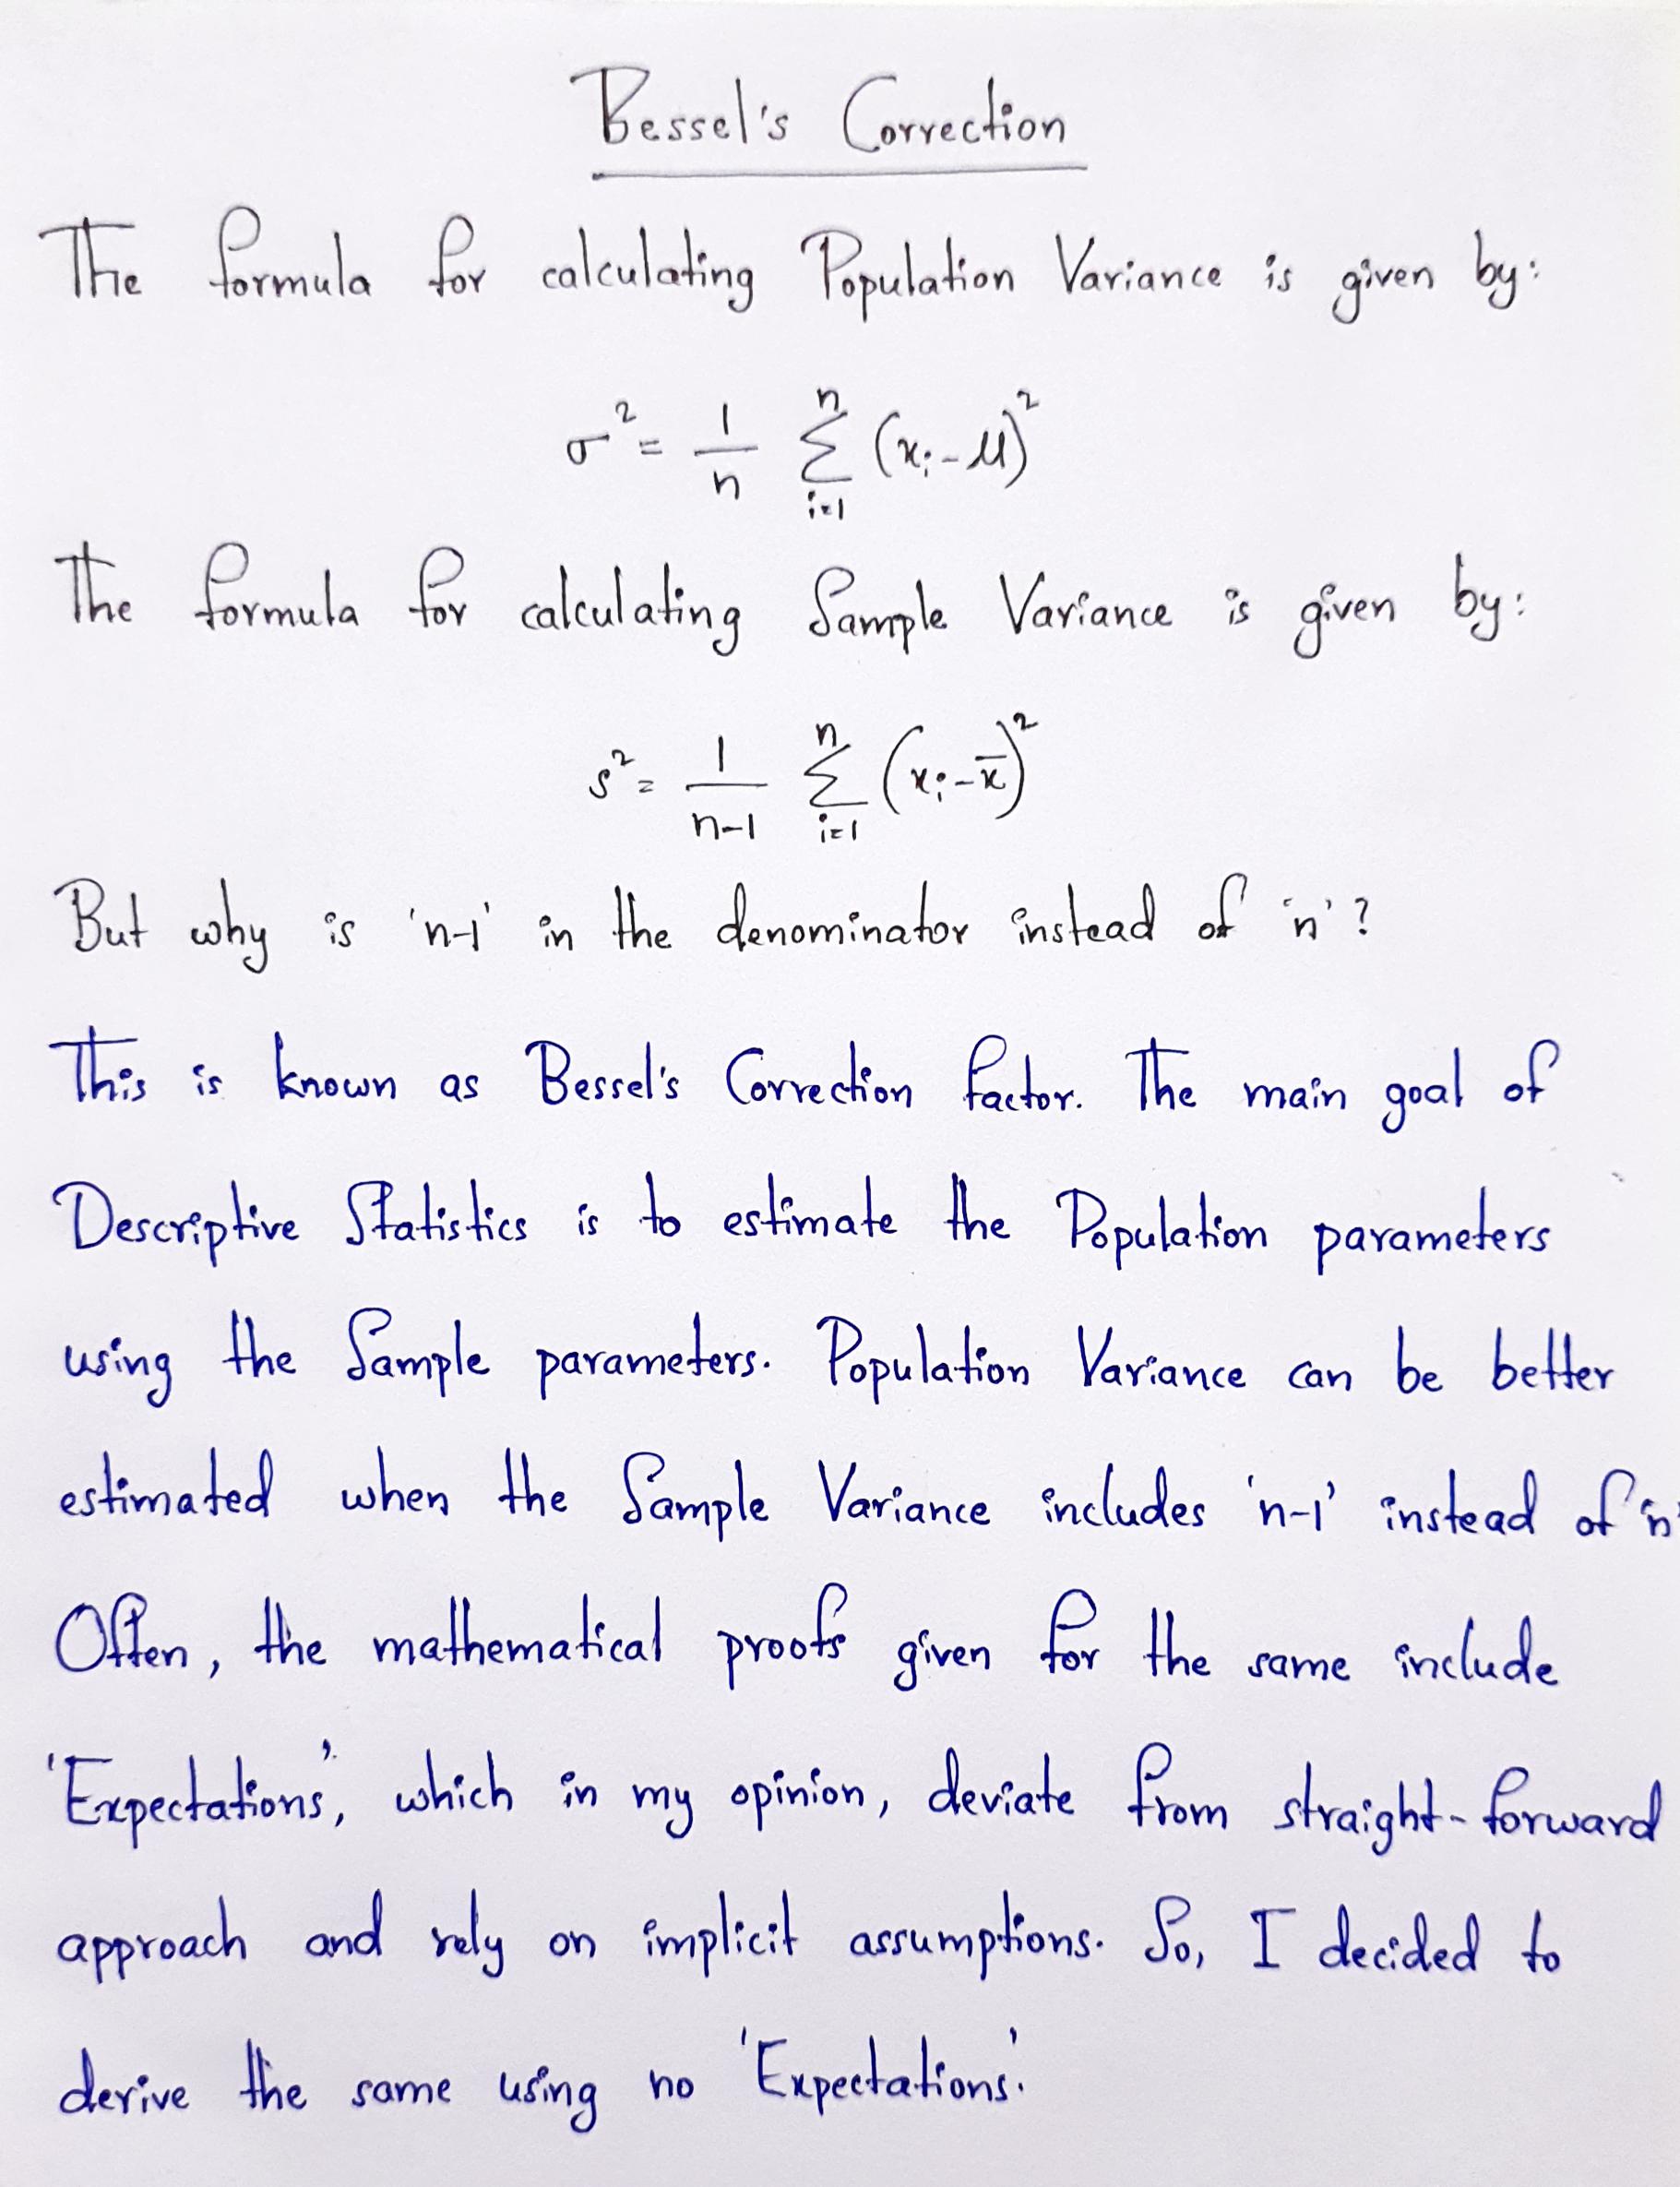 Bessel's Correction
The formula for calculating Population Variance is given by:
σ² = 1/n Σᵢ₌₁ⁿ (xᵢ - μ)²
The formula for calculating Sample Variance is given by:
s² = 1/(n-1) Σᵢ₌₁ⁿ (xᵢ - x̄)²
But why is 'n-1' in the denominator instead of 'n'?
This is known as Bessel's Correction factor. The main goal of
Descriptive Statistics is to estimate the Population parameters
using the Sample parameters. Population Variance can be better
estimated when the Sample Variance includes 'n-1' instead of 'n'
Often, the mathematical proofs given for the same include
'Expectations', which in my opinion, deviate from straight-forward
approach and rely on implicit assumptions. So, I decided to
derive the same using no 'Expectations'.